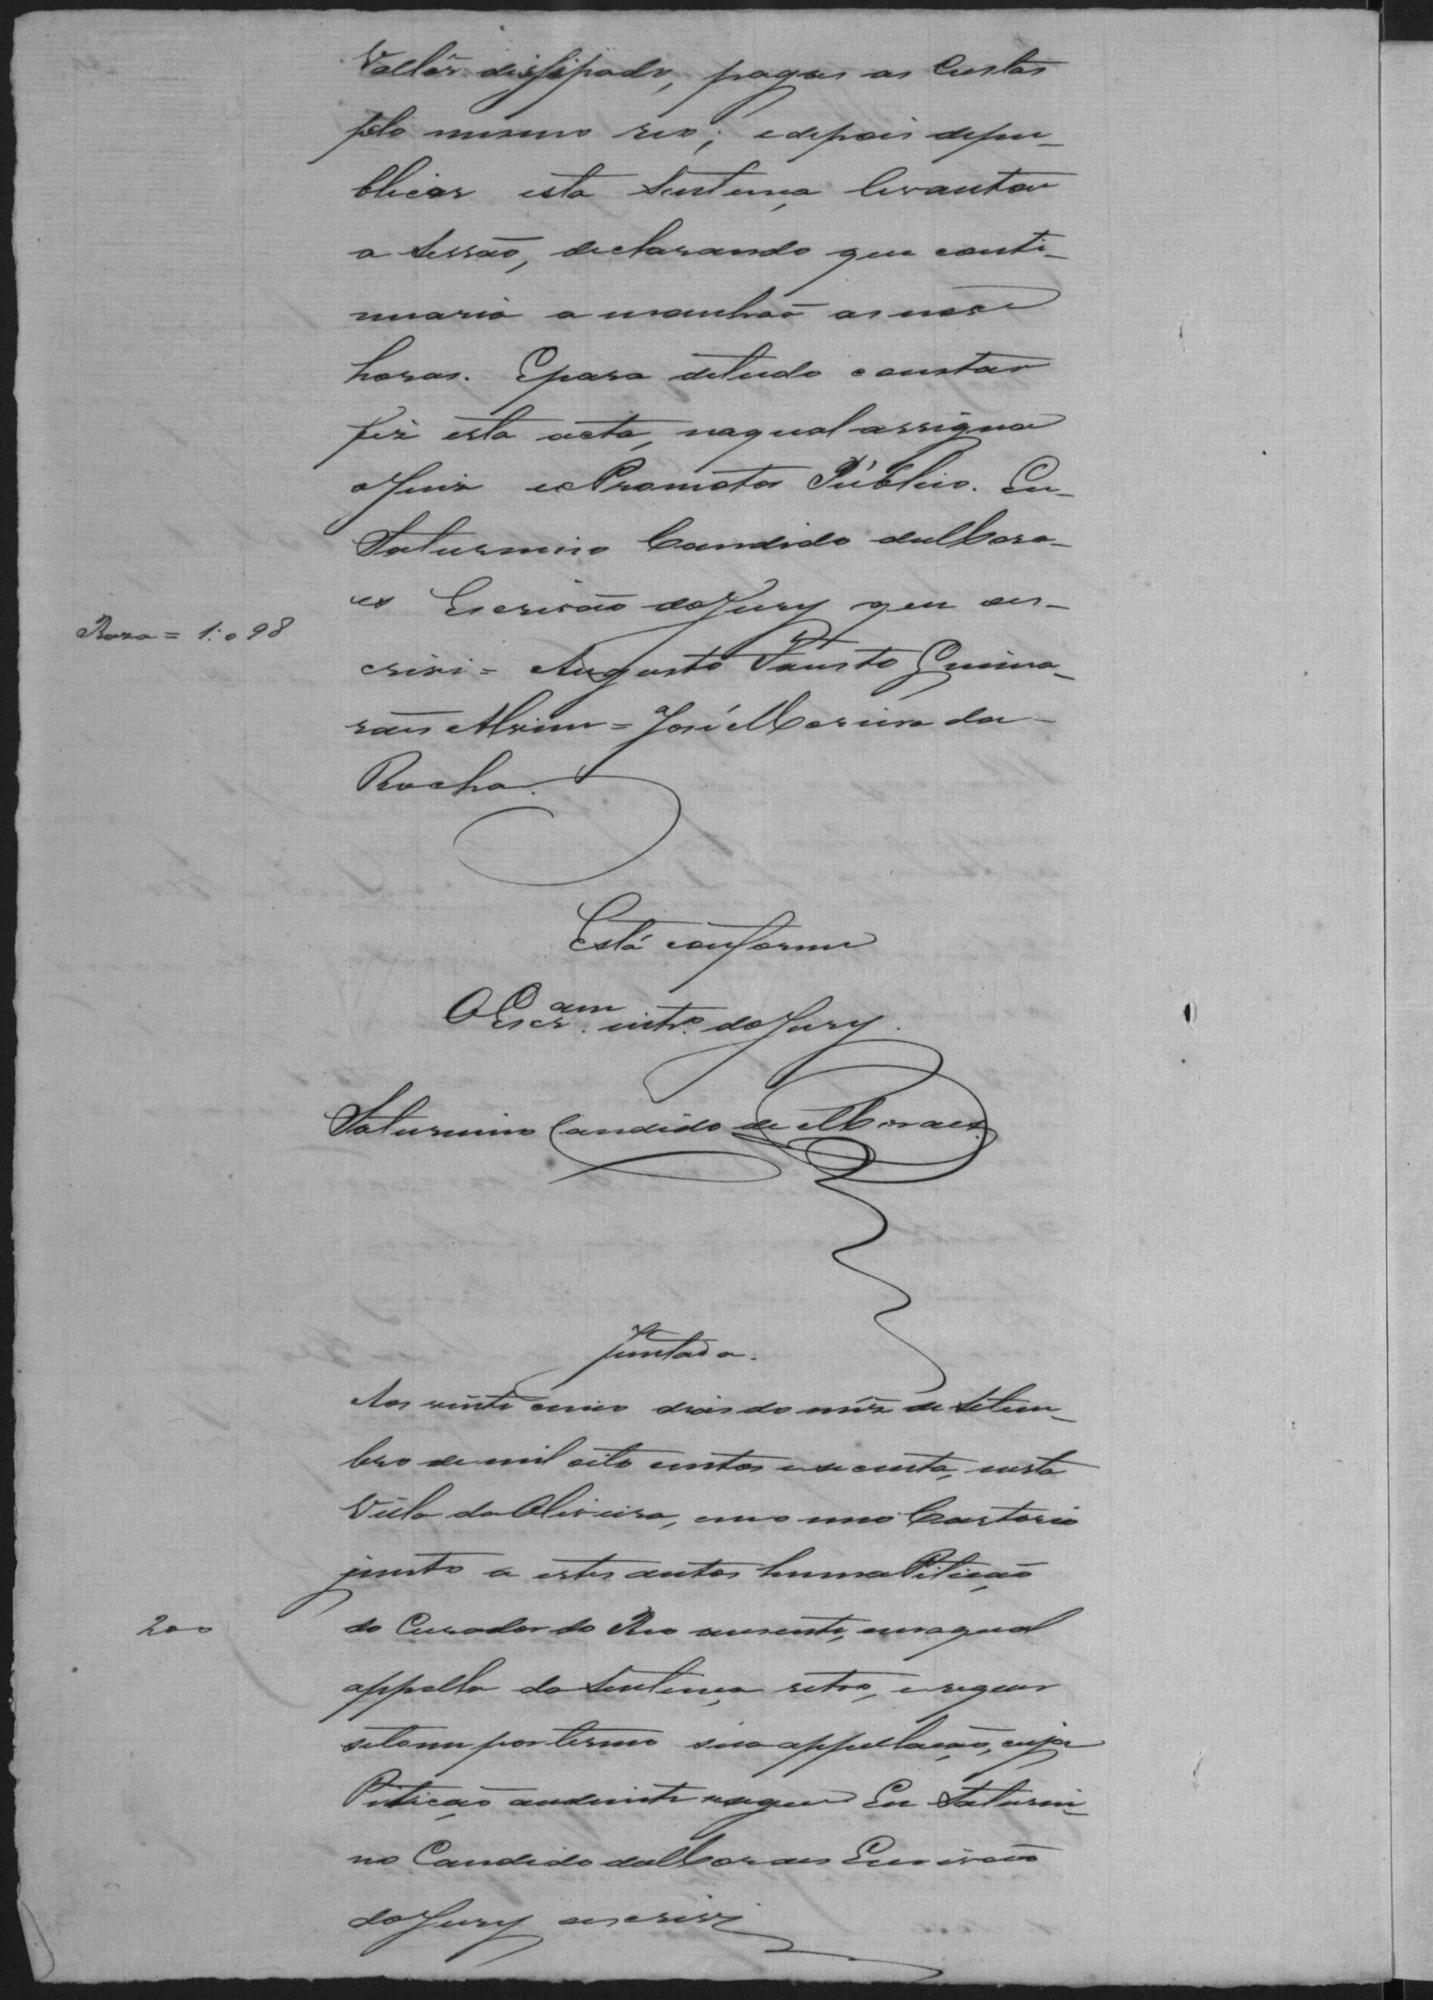 Vallôr dissipado, pagas as Custas
pelo mesmo reo; e depois de pu-
blicar esta Sentença levantou
a Sessão, declarando que conti-
nuaria a manhãa as nove
horas. E para de tudo constar
fiz esta acta, na qual assigna
o Juiz e o Promotor Público. Eu
Saturnino Candido de Mora-
es Escrivão do Jury que es-
Raza = 1:098
crivi = Augusto Fausto Guima-
rães Alvim = José Moreira da
Rocha.
Está conforme
O Escr.am intr.o do Jury.
Saturnino Candido de Moraes
Juntada.
Aos vinte cinco dias do mêz de Setem-
bro de mil oito centos e secenta, nesta
Villa da Oliveira, em o meo Cartorio
junto a estes autos huma Petição
200
do Curador do Reo auzente, em a qual
appella da Sentença retro, e requer
se tome por termo sua appellação, cuja
Petição au diante segue Eu Saturni-
no Candido de Moraes Escrivão
do Jury escrivi